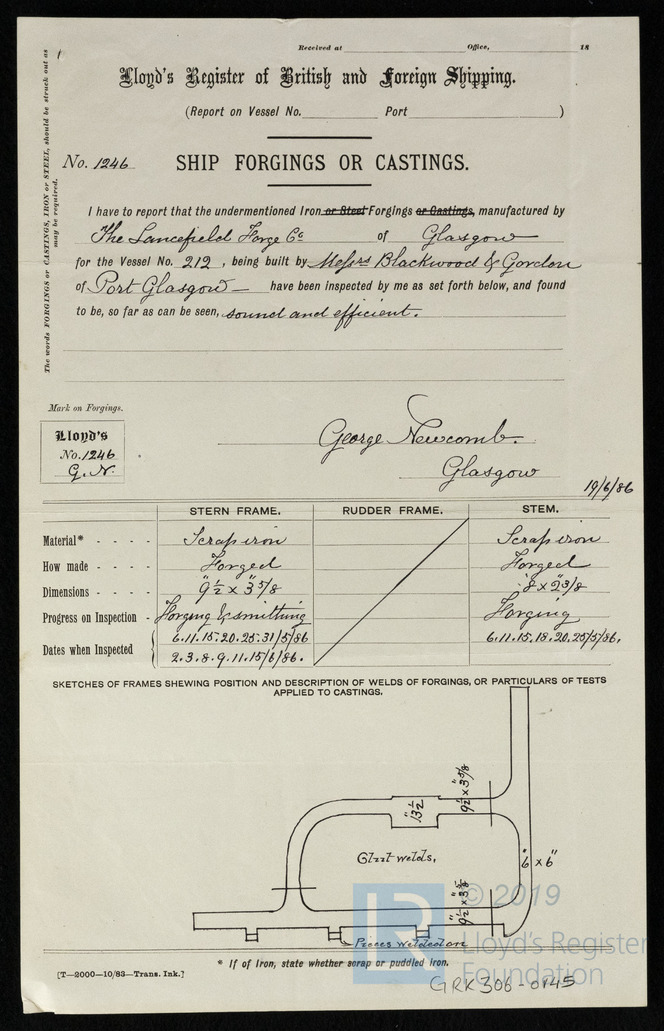 Received at Office, 18
Lloyd's Register of British and Foreign Shipping.
(Report on Vessel No. Port )
The words FORGINGS or CASTINGS, IRON or STEEL, should be struck out as
may be required.
No. 1246 SHIP FORGINGS OR CASTINGS.
I have to report that the undermentioned Iron or Steel Forgings or Castings, manufactured by
The Lancefield Forge Co of Glasgow
for the Vessel No. 212, being built by Messrs Blackwood & Gordon
of Port Glasgow have been inspected by me as set forth below, and found
to be, so far as can be seen, sound and efficient.
Mark on Forgings.
Lloyd's
No. 1246
G.N.
George Newcomb.
Glasgow
19/6/86
STERN FRAME. RUDDER FRAME. STEM.
Material* - - - - Scrap iron Scrap iron
How made - - - - Forged Forged
Dimensions - - - - 9½" x 3 5/8" 8 x 2 3/8"
Progress on Inspection - Forging & smithing Forging
Dates when Inspected 6.11.15.20.25.31/5/86 6.11.15.18.20.25/5/86.
2.3.8.9.11.15/6/86.
SKETCHES OF FRAMES SHEWING POSITION AND DESCRIPTION OF WELDS OF FORGINGS, OR PARTICULARS OF TESTS
APPLIED TO CASTINGS.
13½"
9½" x 3 5/8
Glut welds,
6" x 6"
9½" x 3 5/8
Pieces welded on
* If of Iron, state whether scrap or puddled iron.
[T—2000—10/83—Trans. Ink.]
GRK306-0145
LR
© 2019
Lloyd's Register
Foundation